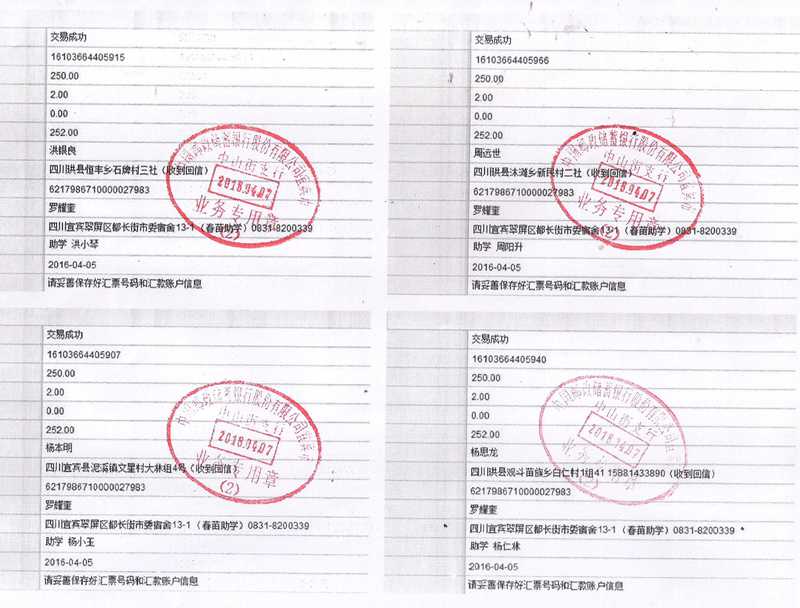 交易成功
16103664405915
250.00
2.00
0.00
252.00
洪银良
四川珙县恒丰乡石牌村三社（收到回信）
6217986710000027983
罗耀奎
四川宜宾翠屏区都长街市委宿舍13-1（春苗助学）0831-8200339
助学 洪小琴
2016-04-05
请妥善保存好汇票号码和汇款账户信息
中山街支行
2016.04.07
业务专用章
(2)
交易成功
16103664405966
250.00
2.00
0.00
252.00
周远世
四川珙县沐滩乡新民村二社（收到回信）
6217986710000027983
罗耀奎
四川宜宾翠屏区都长街市委宿舍13-1（春苗助学）0831-8200339
助学 周阳升
2016-04-05
请妥善保存好汇票号码和汇款账户信息
中山街支行
2016.04.07
业务专用章
(2)
交易成功
16103664405907
250.00
2.00
0.00
252.00
杨本明
四川宜宾县泥溪镇文星村大林组4号（收到回信）
6217986710000027983
罗耀奎
四川宜宾翠屏区都长街市委宿舍13-1（春苗助学）0831-8200339
助学 杨小玉
2016-04-05
请妥善保存好汇票号码和汇款账户信息
中山街支行
2016.04.07
业务专用章
(2)
交易成功
16103664405940
250.00
2.00
0.00
252.00
杨思龙
四川珙县观斗苗族乡白仁村1组41 15881433890（收到回信）
6217986710000027983
罗耀奎
四川宜宾翠屏区都长街市委宿舍13-1（春苗助学）0831-8200339
助学 杨仁林
2016-04-05
请妥善保存好汇票号码和汇款账户信息
中山街支行
2016.04.07
业务专用章
(2)